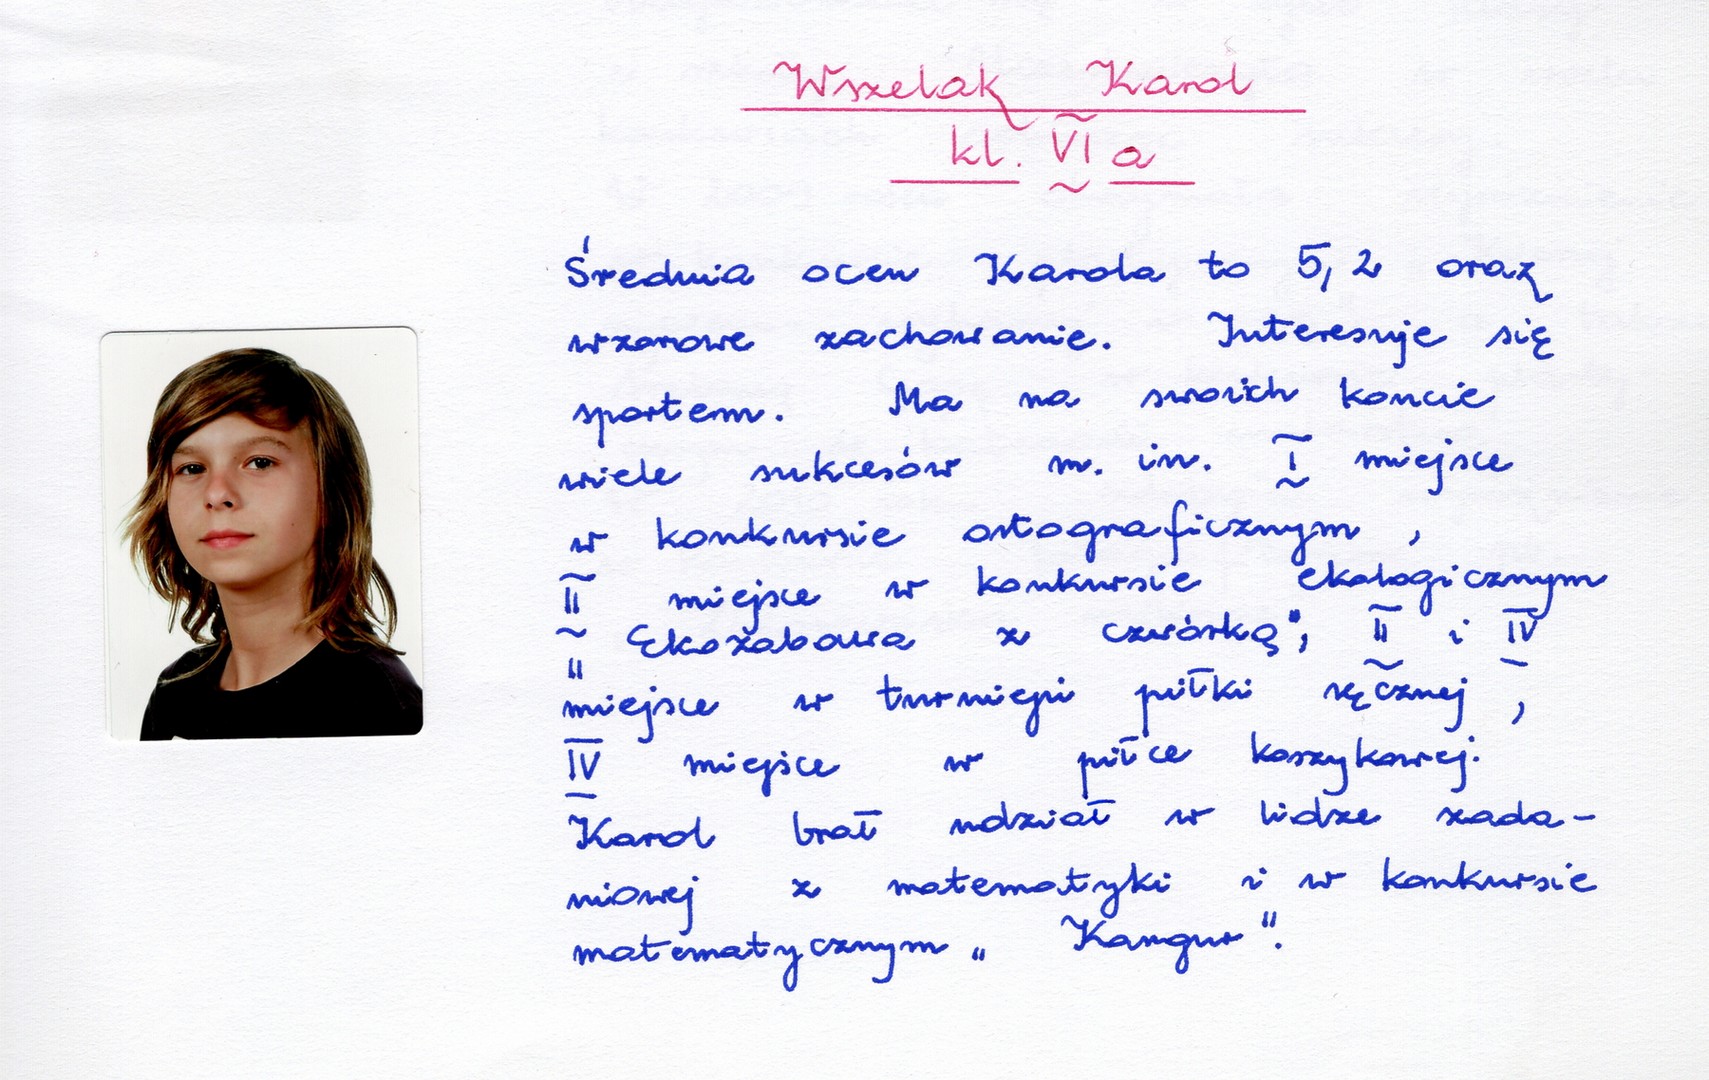 Wszelak Karol
kl. VI a
Średnia ocen Karola to 5,2 oraz
wzorowe zachowanie. Interesuje się
sportem. Ma na swoich koncie
wiele sukcesów m. in. I miejsce
w konkursie ortograficznym,
II miejsce w konkursie ekologicznym
„Ekozabawa z czwórką", II i IV
miejsce w turnieju piłki ręcznej,
IV miejsce w piłce koszykowej.
Karol brał udział w lidze zada-
niowej z matematyki i w konkursie
matematycznym „Kangur".